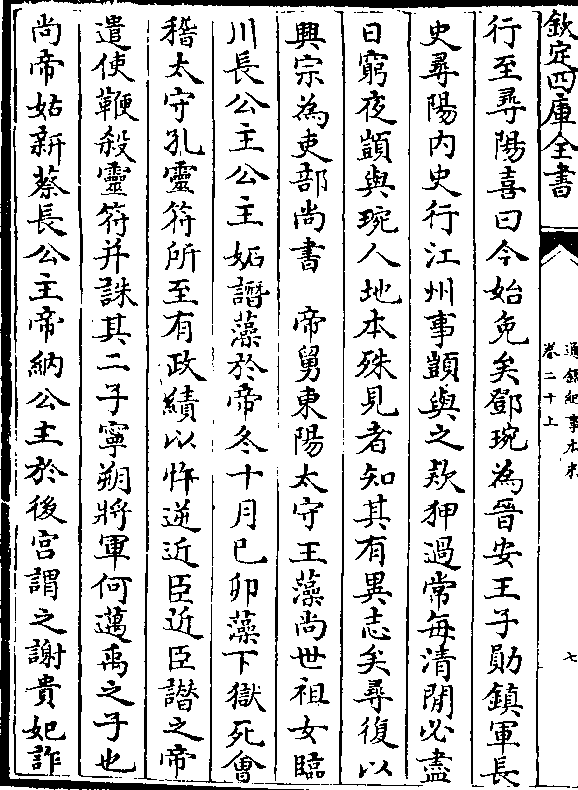 欽定四庫全書
通鑑紀事本末
卷二十上
七
行至尋陽喜曰今始免矣鄧琬為晉安王子勛鎮軍長
史尋陽內史行江州事顗與之欵狎過常每清閒必盡
日窮夜顗與琬人地本殊見者知其有異志矣尋復以
興宗為吏部尚書　帝舅東陽太守王藻尚世祖女臨
川長公主公主妬譖藻於帝冬十月已卯藻下獄死會
稽太守孔靈符所至有政績以忤逆近臣近臣譖之帝
遣使鞭殺靈符并誅其二子寧朔將軍何邁禹之子也
尚帝姑新蔡長公主帝納公主於後宫謂之謝貴妃詐